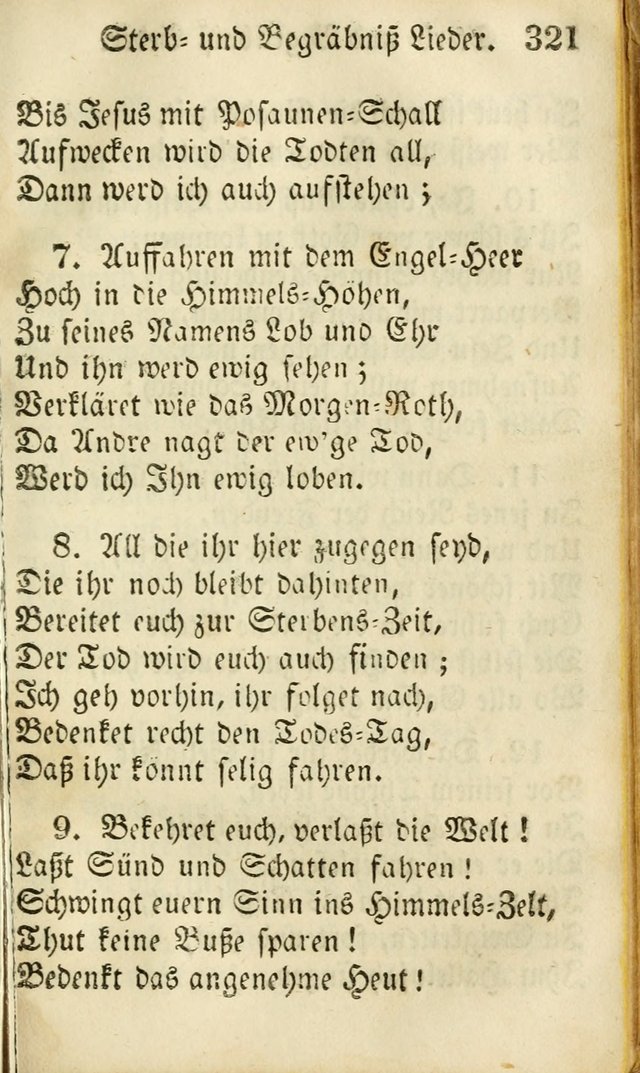 Sterb- und Begräbniß Lieder. 321
Bis Jesus mit Posaunen-Schall
Aufwecken wird die Todten all,
Dann werd ich auch aufstehen ;
7. Auffahren mit dem Engel-Heer
Hoch in die Himmels-Höhen,
Zu seines Namens Lob und Ehr
Und ihn werd ewig sehen ;
Verkläret wie das Morgen-Roth,
Da Andre nagt der ew'ge Tod,
Werd ich Ihn ewig loben.
8. All die ihr hier zugegen seyd,
Die ihr noch bleibt dahinten,
Bereitet euch zur Sterbens-Zeit,
Der Tod wird euch auch finden ;
Ich geh vorhin, ihr folget nach,
Bedenket recht den Todes-Tag,
Daß ihr könnt selig fahren.
9. Bekehret euch, verlaßt die Welt !
Laßt Sünd und Schatten fahren !
Schwingt euern Sinn ins Himmels-Zelt,
Thut keine Buße sparen !
Bedenkt das angenehme Heut !